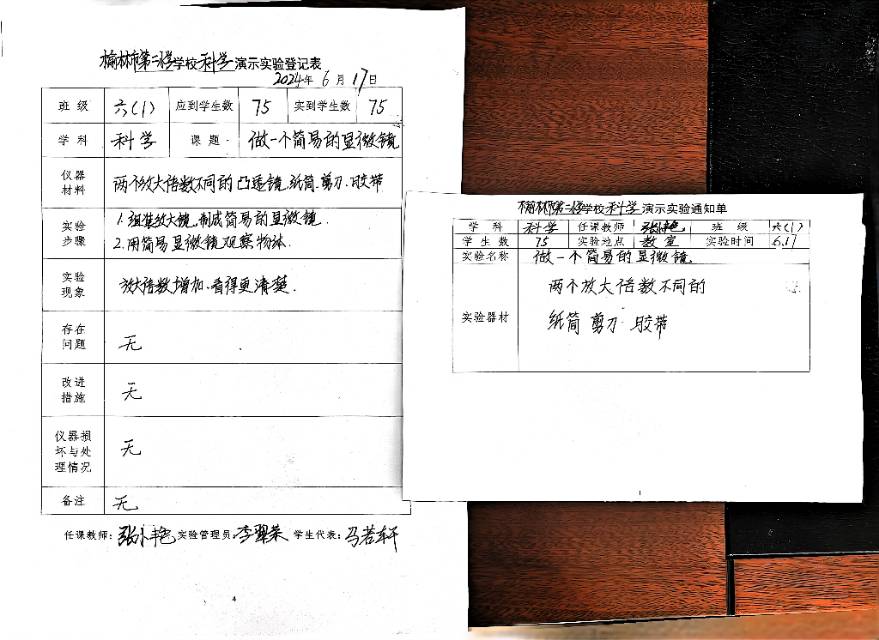 榆林市第二小学学校科学演示实验登记表
2024年6月17日
班级 六(1) 应到学生数 75 实到学生数 75
学科 科学 课题 做一个简易的显微镜
仪器材料 两个放大倍数不同的凸透镜.纸筒.剪刀.胶带
实验步骤 1.组装放大镜,制成简易的显微镜.
2.用简易显微镜观察物体.
实验现象 放大倍数增加.看得更清楚.
存在问题 无
改进措施 无
仪器损坏与处理情况 无
备注 无
任课教师: 实验管理员: 李翠荣 学生代表: 马若轩
4
榆林市第二小学学校科学演示实验通知单
学科 科学 任课教师 班级 六(1)
学生数 75 实验地点 教室 实验时间 6.17
实验名称 做一个简易的显微镜
实验器材 两个放大倍数不同的
纸筒 剪刀.胶带
1